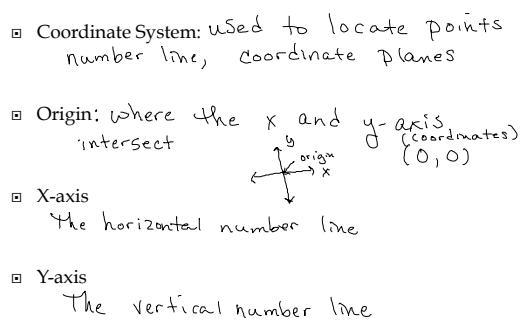 Coordinate System: used to locate points
number line, coordinate planes
Origin: where the x and y-axis
intersect
(coordinates)
(0,0)
y
origin
x
X-axis
the horizontal number line
Y-axis
The vertical number line